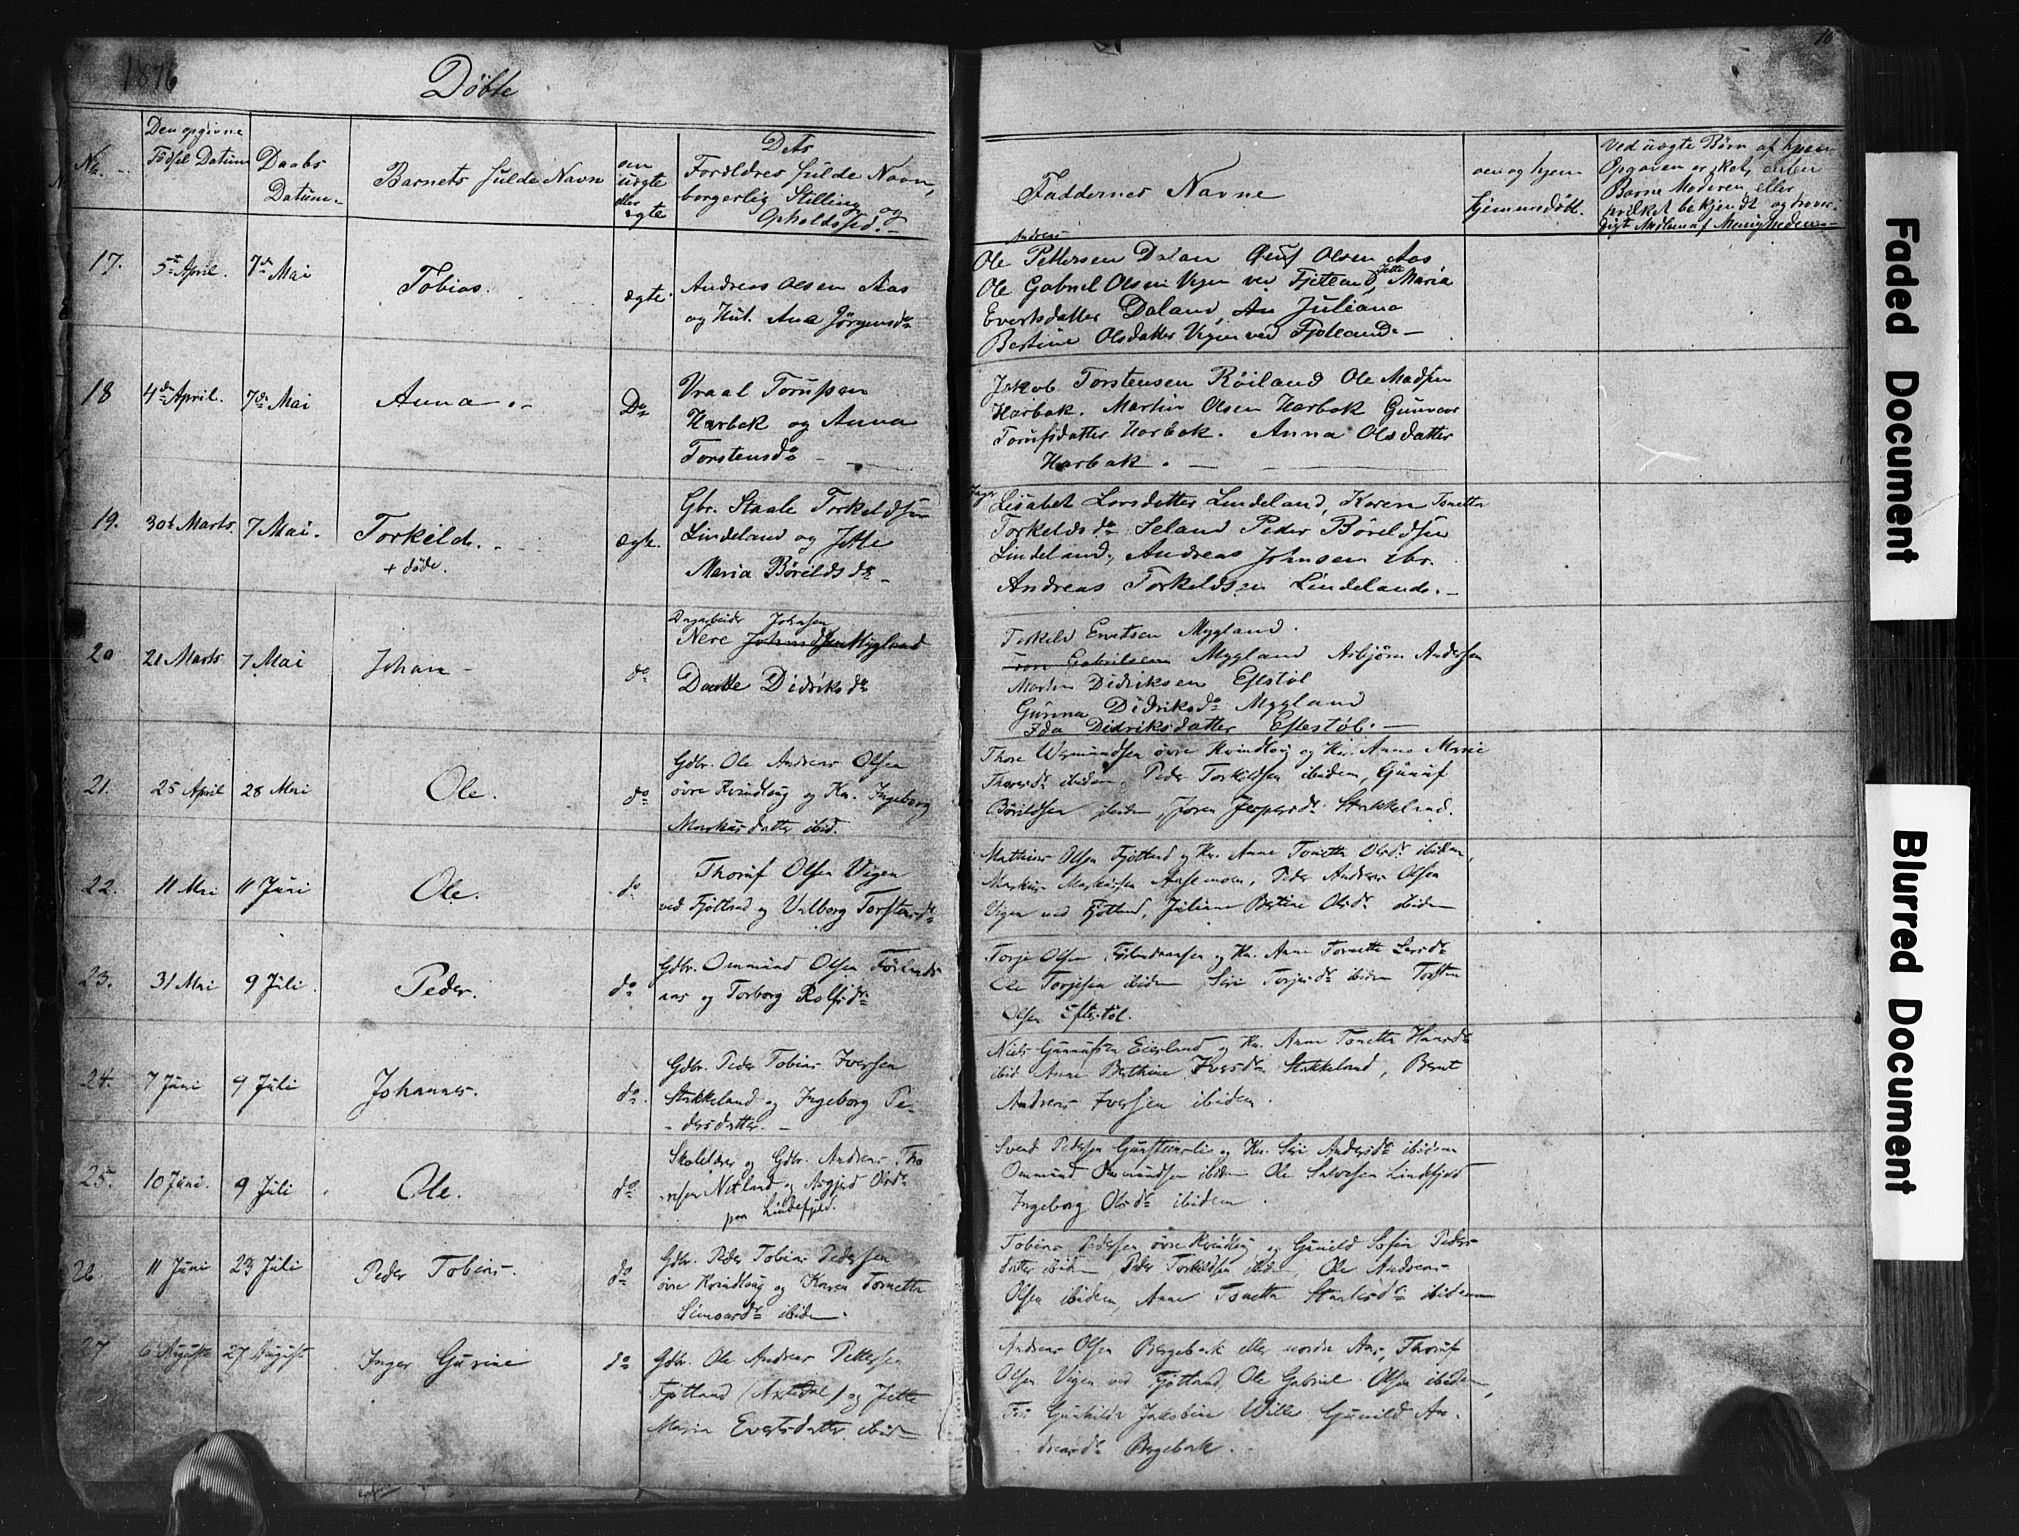 1876
Døbte
16
No.
Den opgivne
Fødsel Datum
Daabs
Datum.
Barnets fulde Navn
om
uægte
eller
ægte
Dets
Forældres fulde Navn,
borgerlig Stilling og
Opholdssted.
Faddernes Navne
om og hjem
hjemmedøbt.
Ved uægte Børn af hvem
Opgaven er skeet, enten
Barne Moderen, eller
hvilket bekjendt og trovær-
digt Medlem af Menigheden
17.
5te April.
7de Mai
Tobias.
ægte.
Andreas Olsen Aas
og Hust. Ane Jørgensdr
Andreas
Ole Pettersen Daland Olsen Aas
Ole Gabriel Olsen Vigen ved Fjotland, Jette Maria
Evertsdatter Daland, An Juliana
Bertine Olsdatter Vigen ved Fjotland
18
4de April.
7de Mai
Anna.
Do
Vraal Torufsen
Harbak og Anna
Torstensdr
Jakob Torstensen Röiland Ole Madsen
Harbak. Martin Olsen Harbak Gunvor
Torufsdatter Harbak. Anna Olsdatter
Harbak.
19.
30te Marts.
7 Mai.
Torkild.
+ døde.
ægte.
Gbr. Staale Torkeldsen
Lindeland og Jette
Maria Böreldsdr
Lisabet Larsdatter Lindeland, Karen Tonette
Torkeldsdr Seland Peder Böreldsen
Lindeland, Andreas Johnsen ibr.
Andreas Torkeldsen Lindeland.
20
21 Marts
7 Mai
Johan
do
Dagarbeider Johnsen
Nere Mygland
Dorte Didriksdr
Torkeld Evertsen Mygland.
Gabrielsen Mygland Asbjørn Andersen
Martin Didriksen Eftestöl
Gurina Didriksdr Mygland
Ida Didriksdatter Eftestöl.
21.
25 April
28 Mai
Ole.
do
Gdbr. Ole Andreas Olsen
övre Kvindlaug og Ku. Ingeborg
Markusdatter ibid.
Thore Wermundsen övre Kvindlaug og Ku. Anne Marie
Thoresdr ibidem, Peder Torkildsen ibidem, Gunuf
Böreldsen ibidem, Joren Jespersdr Stakkeland.
22.
11 Mai
11 Juni
Ole.
do
Thoruf Olsen Vigen
ved Fjotland og Valborg Torstensdr
Mathias Olsen Fjotland og Ku. Anne Tonette Olsdr ibidem,
Markus Markusen Aasemoen, Peder Andreas Olsen
Vigen ved Fjotland, Juliane Bertine Olsdr ibidem
23.
31 Mai
9 Juli.
Peder.
do
Gdbr. Ommund Olsen
aas og Torborg Rolfsdr
Torje Olsen og Ku. Anne Tonette Larsdr
Ole Torjesen ibidem, Siri Torjesdr ibidem Torsten
Olsen Eftestöl.
24.
7 Juni
9 Juli
Johannes.
do.
Gdbr. Peder Tobias Iversen
Stakkeland og Ingeborg Pe-
dersdatter.
Niels Gunnufsen Eieland og Ku. Anne Tonette Hansdr
ibid Anne Berthine Iversdr Stakkeland, Bernt
Andreas Iversen ibidem.
25.
10 Juni.
9 Juli
Ole.
do
Skolelærer og Gdbr. Andreas Tho
resen Netland og Asgjerd Olsdr
paa Lindefjeld.
Svend Pedersen og Ku. Siri Andersdr ibidem
Ommund Ommundsen ibidem Ole Salvesen Lindefjeld
Ingeborg Olsdr ibidem.
26.
11 Juni
23 Juli
Peder Tobias.
do
Gdbr. Peder Tobias Pedersen
övre Kvindlaug og Karen Tonette
Simonsdr ibidem.
Tobias Pedersen övre Kvindlaug og Gunild Sofie Peders-
datter ibidem Peder Torkildsen ibidem, Ole Andreas
Olsen ibidem, Anne Tonette ibidem
27
6 August
27 August
Inger Gurine
do
Gdbr. Ole Andreas Pettersen
Fjotland (Axedal) og Jette
Maria Evertsdatter ibid
Andreas Olsen Bergebak eller nordre Aas, Thoruf
Olsen Vigen ved Fjotland, Ole Gabriel Olsen ibidem,
Gunhilde Jakobine Wille Gunild An-
dreasdr Bergebak.
Faded Document
Blurred Document